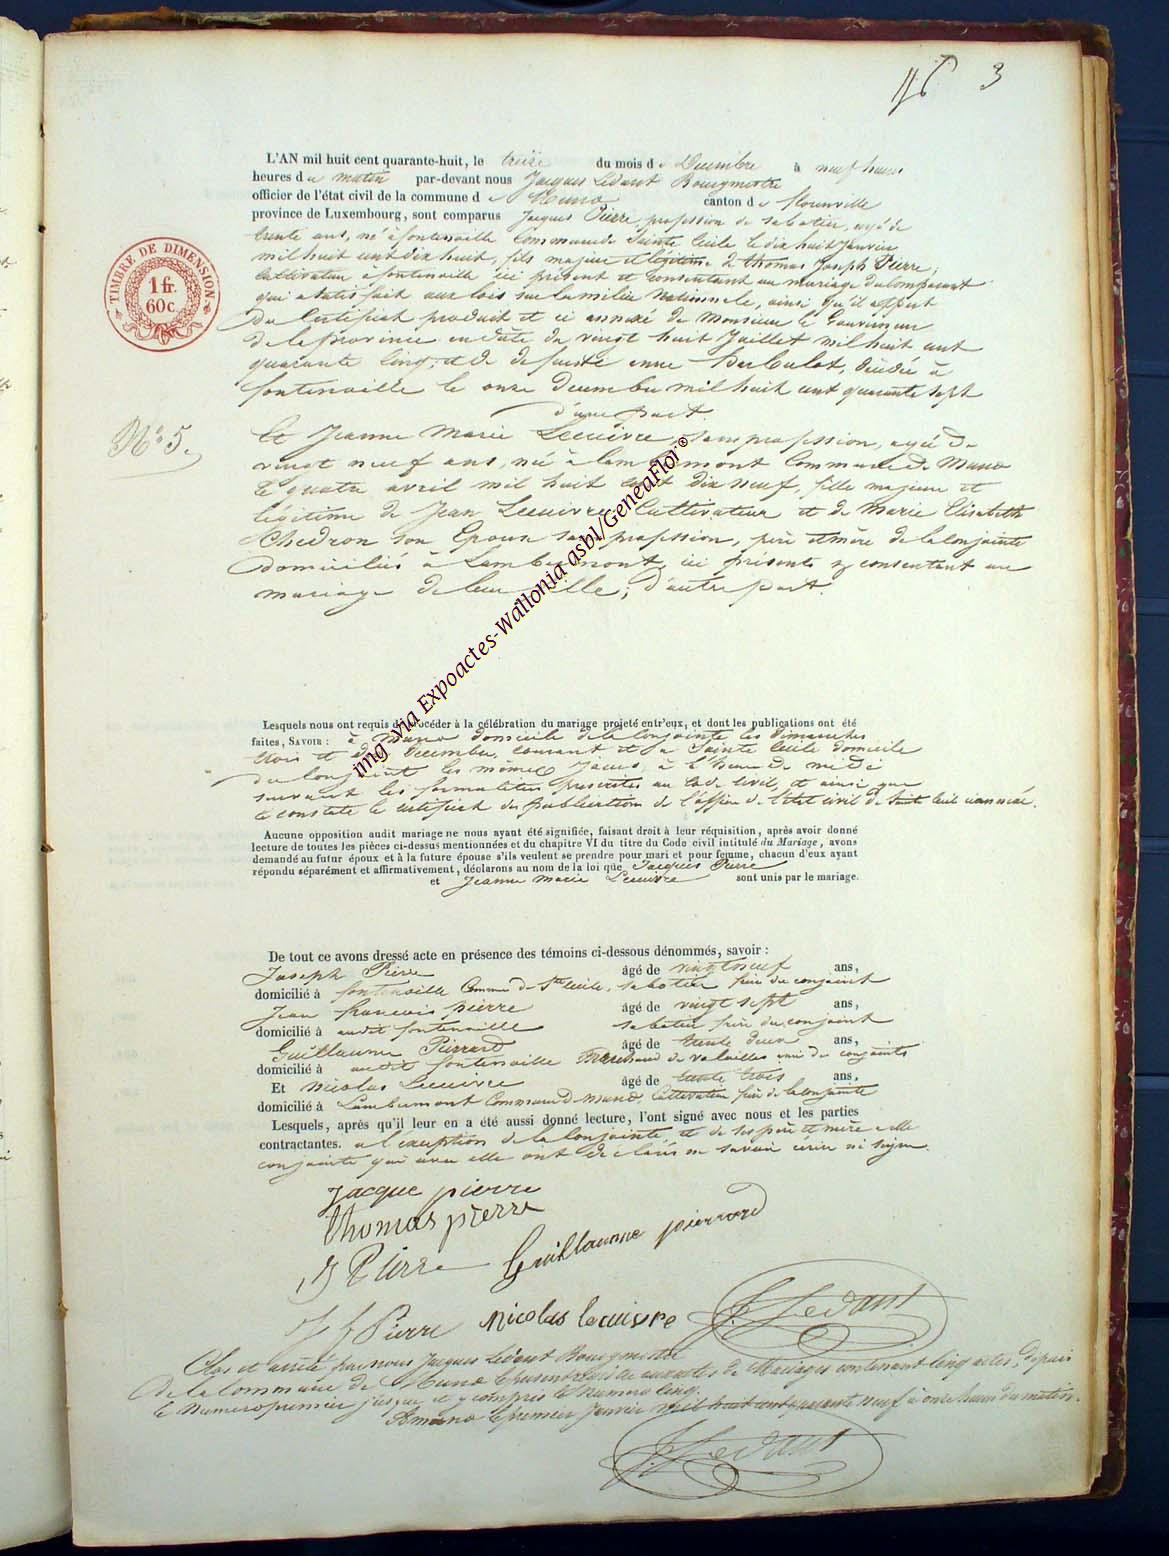 3
L'AN mil huit cent quarante-huit, le treize du mois de Decembre à neuf heures
heures du matin par-devant nous Jacques Ledant Bourgmestre
officier de l'état civil de la commune de Muno canton de florenville
province de Luxembourg, sont comparus Jacques Pierre profession de sabotier, agé de
trente ans, né à fontenoille Commune de Sainte Cécile le dix huit Janvier
mil huit cent dix huit, fils majeur et légitime de thomas Joseph Pierre,
Cultivateur à fontenoille ici présent et consentant au mariage du comparant
qui a satisfait aux lois sur la milice nationale, ainsi qu'il appert
du Certificat produit et ci annexé de Monsieur le Gouverneur
de la province en date du vingt huit Juillet mil huit cent
quarante Cinq, et de defunte anne decédée à
fontenoille le onze decembre mil huit cent quarante sept
d'une part.
TIMBRE DE DIMENSION
1 fr.
60c.
No 5.
Et Jeanne Marie Lecuivre, sans profession, agée de
vingt neuf ans, née à Lambermont Commune de Muno
le quatre avril mil huit cent dix neuf, fille majeure et
légitime de Jean Lecuivre Cultivateur et de Marie Elisabeth
Chedron son Epouse sans profession, père et mère de la Conjointe
domiciliés à Lambermont, ici présents et consentant au
mariage de leur fille, d'autre part.
img via Expoactes-Wallonia asbl/GeneaFlor®
Lesquels nous ont requis de procéder à la célébration du mariage projeté entr'eux, et dont les publications ont été
faites, SAVOIR : à Muno domicile de la Conjointe les dimanches
trois et dix Decembre, courant et à Sainte Cécile domicile
du Conjoint les mêmes Jours, à l'heure de midi
suivant les formalités prescrites au Code Civil, et ainsi que
le constate le certificat de publication de l'officier de l'Etat civil de Sainte Cécile ci annéxé.
Aucune opposition audit mariage ne nous ayant été signifiée, faisant droit à leur réquisition, après avoir donné
lecture de toutes les pièces ci-dessus mentionnées et du chapitre VI du titre du Code civil intitulé du Mariage, avons
demandé au futur époux et à la future épouse s'ils veulent se prendre pour mari et pour femme, chacun d'eux ayant
répondu séparément et affirmativement, déclarons au nom de la loi que Jacques Pierre
et Jeanne Marie Lecuivre sont unis par le mariage.
De tout ce avons dressé acte en présence des témoins ci-dessous dénommés, savoir :
Joseph Pierre âgé de vingt neuf ans,
domicilié à fontenoille Commune de Ste Cécile, sabotier frère du conjoint
Jean françois pierre âgé de vingt sept ans,
domicilié à audit fontenoille sabotier frère du conjoint
Guillaume Pierrard âgé de trente deux ans,
domicilié à audit fontenoille Marchand de volailles ami des conjoints
Et Nicolas Lecuivre âgé de trente trois ans,
domicilié à Lambermont Commune de Muno, Cultivateur frère de la conjointe
Lesquels, après qu'il leur en a été aussi donné lecture, l'ont signé avec nous et les parties
contractantes. à l'exception de la Conjointe, et de ses père et mère
conjointe qui avec elle ont déclarés ne savoir écrire ni signer.
Jacque pierre
thomas pierre
J Pierre Guillaume pierrard
J f Pierre Nicolas lecuivre J. Ledant
Clos et arrêté par nous Jacques Ledant Bourgmestre
de la Commune de Muno le présent de mariages contenant cinq actes, depuis
le numero premier jusque et y compris le numero cinq.
A Muno le premier Janvier mil huit cent quarante neuf à onze heures du matin.
J. Ledant